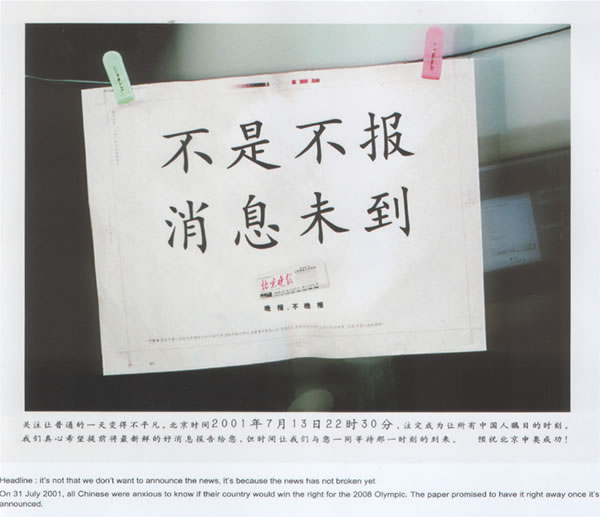 不是不报
消息未到
北京晚报
晚报,不晚报
关注让普通的一天变得不平凡。北京时间2001年7月13日22时30分,注定成为让所有中国人瞩目的时刻。
我们真心希望提前将最新鲜的好消息报告给您,但时间让我们与您一同等待那一时刻的到来。 预祝北京申奥成功!
Headline : it's not that we don't want to announce the news, it's because the news has not broken yet
On 31 July 2001, all Chinese were anxious to know if their country would win the right for the 2008 Olympic. The paper promised to have it right away once it's
announced.